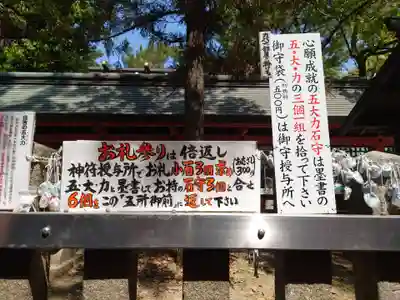 心願成就の五大力石守は墨書の
五・大・力の三個一組を拾って下さい
御守袋(五〇〇円)は御守授与所へ
お札参りは倍返し
神符授与所でお札小石3個求め
五・大・力と墨書してお持の石守3個と合せ
6個をこの"五所御前"に返して下さい